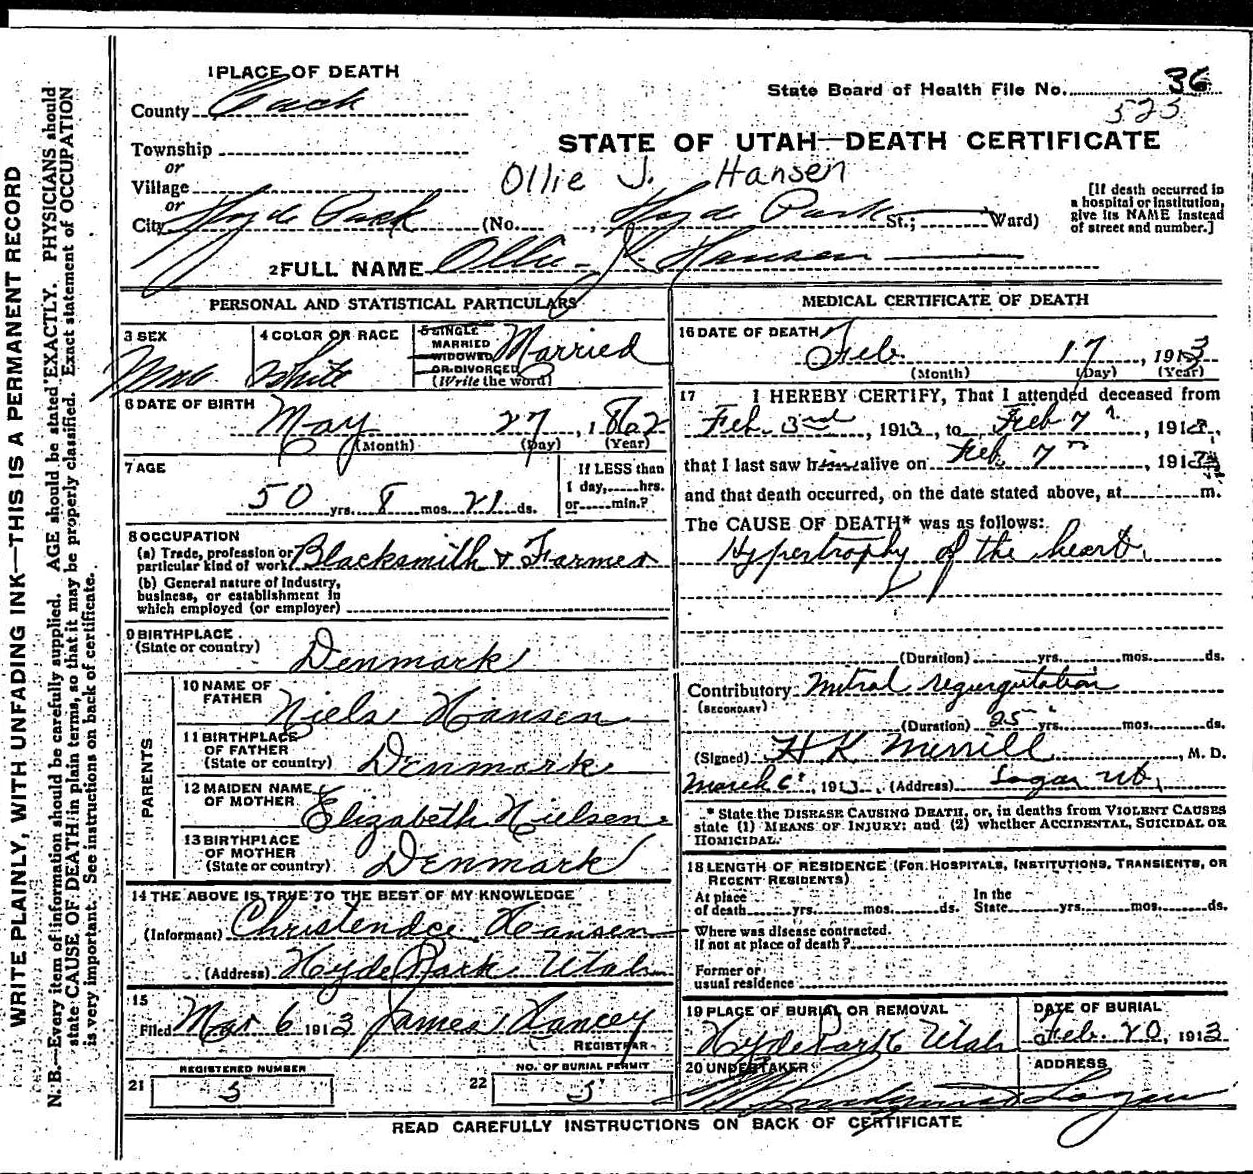 1 PLACE OF DEATH
County Cach
State Board of Health File No. 36
525
STATE OF UTAH—DEATH CERTIFICATE
Township
or
Village
or
City Hyde Park (No. , Hyde Park St.; Ward)
Ollie J. Hansen
[If death occurred in
a hospital or institution,
give its NAME instead
of street and number.]
2 FULL NAME Ollie J. Hansen
PERSONAL AND STATISTICAL PARTICULARS
3 SEX
4 COLOR OR RACE White
5 SINGLE
MARRIED
WIDOWED
OR DIVORCED
(Write the word)
Married
6 DATE OF BIRTH
May 27, 1862
(Month) (Day) (Year)
7 AGE
50 yrs. 8 mos. 21 ds.
If LESS than
1 day, hrs.
or min.?
8 OCCUPATION
(a) Trade, profession or
particular kind of work Blacksmith & Farmer
(b) General nature of industry,
business, or establishment in
which employed (or employer)
9 BIRTHPLACE
(State or country) Denmark
PARENTS
10 NAME OF
FATHER Niels Hansen
11 BIRTHPLACE
OF FATHER
(State or country) Denmark
12 MAIDEN NAME
OF MOTHER Elizabeth Nielsen
13 BIRTHPLACE
OF MOTHER
(State or country) Denmark
14 THE ABOVE IS TRUE TO THE BEST OF MY KNOWLEDGE
(Informant) Hansen
(Address) Hyde Park Utah
15
Filed Mar 6 1913 James Hancey
REGISTRAR
21 REGISTERED NUMBER
5
22 NO. OF BURIAL PERMIT
5
MEDICAL CERTIFICATE OF DEATH
16 DATE OF DEATH
Feb. 17, 1913
(Month) (Day) (Year)
17 I HEREBY CERTIFY, That I attended deceased from
Feb. 3rd, 1913, to Feb 7, 191
that I last saw him alive on Feb. 7, 1913
and that death occurred, on the date stated above, at m.
The CAUSE OF DEATH* was as follows:
Hypertrophy of the heart
(Duration) yrs. mos. ds.
Contributory Mitral regurgitation
(SECONDARY)
(Duration) 25 yrs. mos. ds.
(Signed) H K Merrill, M. D.
March 6, 1913. (Address) Logan Ut.
* State the DISEASE CAUSING DEATH, or, in deaths from VIOLENT CAUSES
state (1) MEANS OF INJURY; and (2) whether ACCIDENTAL, SUICIDAL OR
HOMICIDAL.
18 LENGTH OF RESIDENCE (FOR HOSPITALS, INSTITUTIONS, TRANSIENTS, OR
RECENT RESIDENTS)
At place
of death yrs. mos. ds.
In the
State yrs. mos. ds.
Where was disease contracted.
If not at place of death?
Former or
usual residence
19 PLACE OF BURIAL OR REMOVAL
Hyde Park Utah
DATE OF BURIAL
Feb. 20, 1913
20 UNDERTAKER
ADDRESS
Logan
READ CAREFULLY INSTRUCTIONS ON BACK OF CERTIFICATE
WRITE PLAINLY, WITH UNFADING INK—THIS IS A PERMANENT RECORD
N. B.—Every item of information should be carefully supplied. AGE should be stated EXACTLY. PHYSICIANS should
state CAUSE OF DEATH in plain terms, so that it may be properly classified. Exact statement of OCCUPATION
is very important. See instructions on back of certificate.